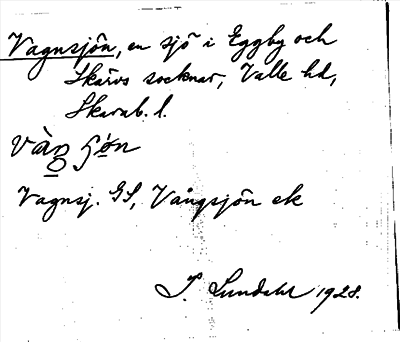 Vagnsjön, en sjö i Eggby och
Skärvs socknar, Valle hd,
Skarab. l.
Vagnsj. GS, Vångsjön ek
I. Lundahl 1928.